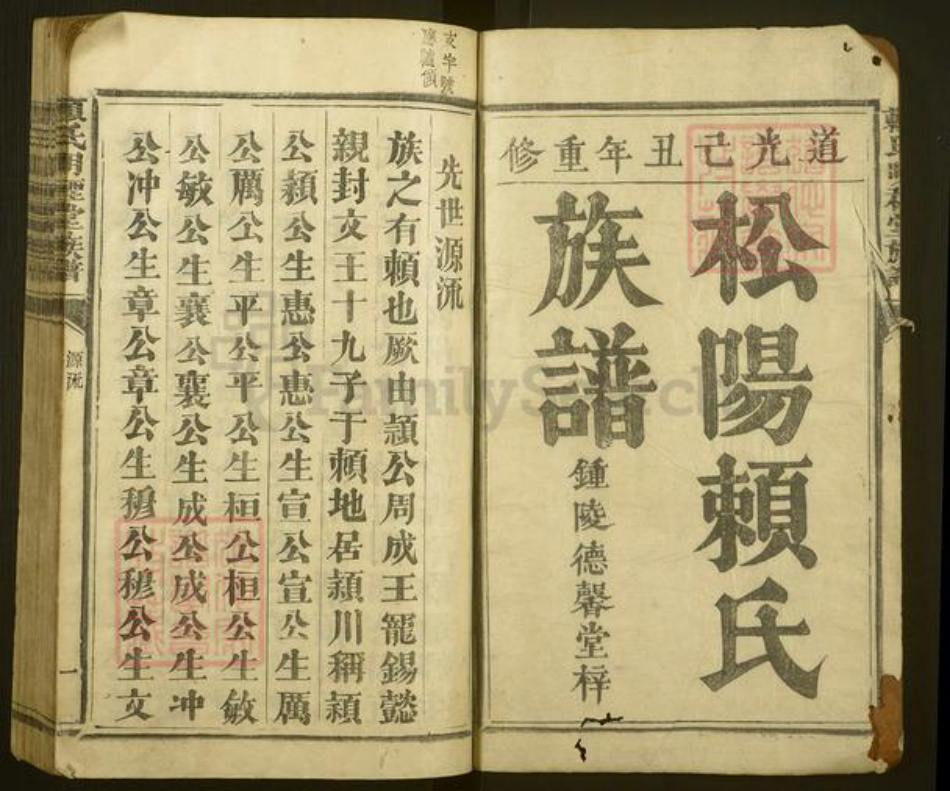 道光己丑年重修
松陽賴氏
族譜
鍾陵德馨堂梓
先世源流
族之有賴也厥由頴公周成王寵錫懿
親封文王十九子于賴地居頴川稱頴
公頴公生惠公惠公生宣公宣公生厲
公厲公生平公平公生桓公桓公生敏
公敏公生襄公襄公生成公成公生冲
公冲公生章公章公生穆公穆公生文
源流
一
FamilySearch